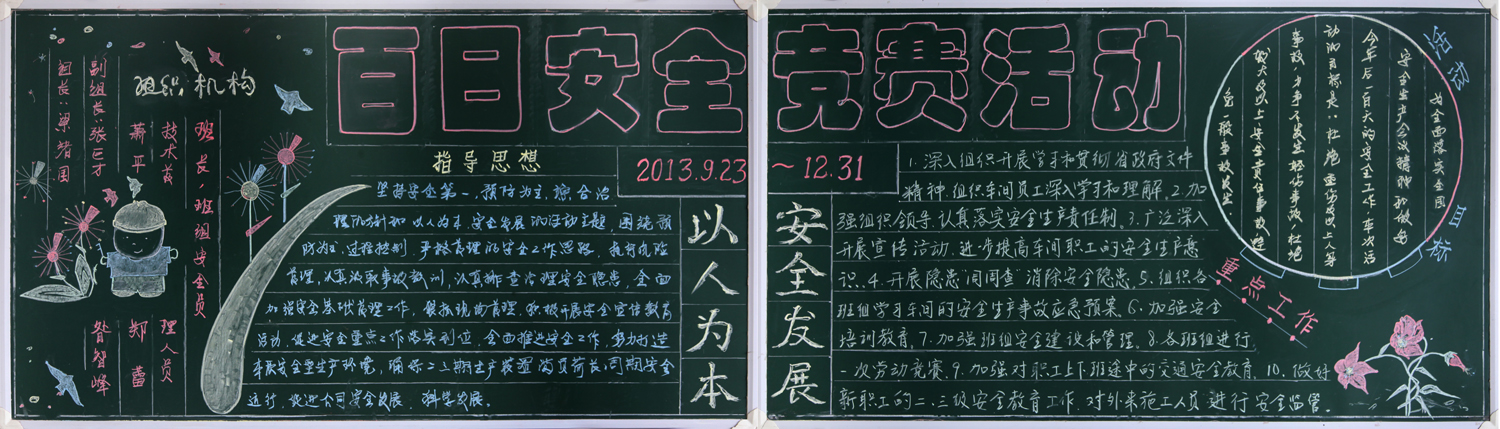 百日安全竞赛活动
2013.9.23~12.31
组织机构
组长:梁绪国
副组长:张巨才
萧平
技术员
班长,班组安全员
郑蕾
理人员
智峰
指导思想
坚持安全第一,预防为主,综合治
理的方针和以人为本、安全发展的活动主题,围绕预
防为主、过程控制、严格管理的安全工作思路,
管理,认真汲取事故教训,认真排查治理安全隐患,全面
加强安全基础管理工作,狠抓现场管理,积极开展安全宣传教育
活动,促进安全重点工作落实到位,全面推进安全工作,努力打造
本质安全型生产环境,确保二三期生产装置满负荷长周期安全
运行,促进公司安全发展、科学发展。
以人为本
安全发展
1.深入组织开展学习和贯彻省政府文件
精神,组织车间员工深入学习和理解.2.加
强组织领导,认真落实安全生产责任制.3.广泛深入
开展宣传活动,进步提高车间职工的安全生产意
识.4.开展隐患“周周查”消除安全隐患.5.组织各
班组学习车间的安全生产事故应急预案.6.加强安全
培训教育.7.加强班组安全建设和管理.8.各班组进行
一次劳动竞赛.9.加强对职工上下班途中的交通安全教育.10.做好
新职工的二、三级安全教育工作,对外来施工人员进行安全监管。
重点工作
活动目标
为全面落实全国
安全生产会议精神和做好
今年后一百天的安全工作,车次活
动的目标是:杜绝重伤及以上人身
事故,力争不发生轻伤事故,杜绝
较大及以上安全责任事故,避
免一般事故发生